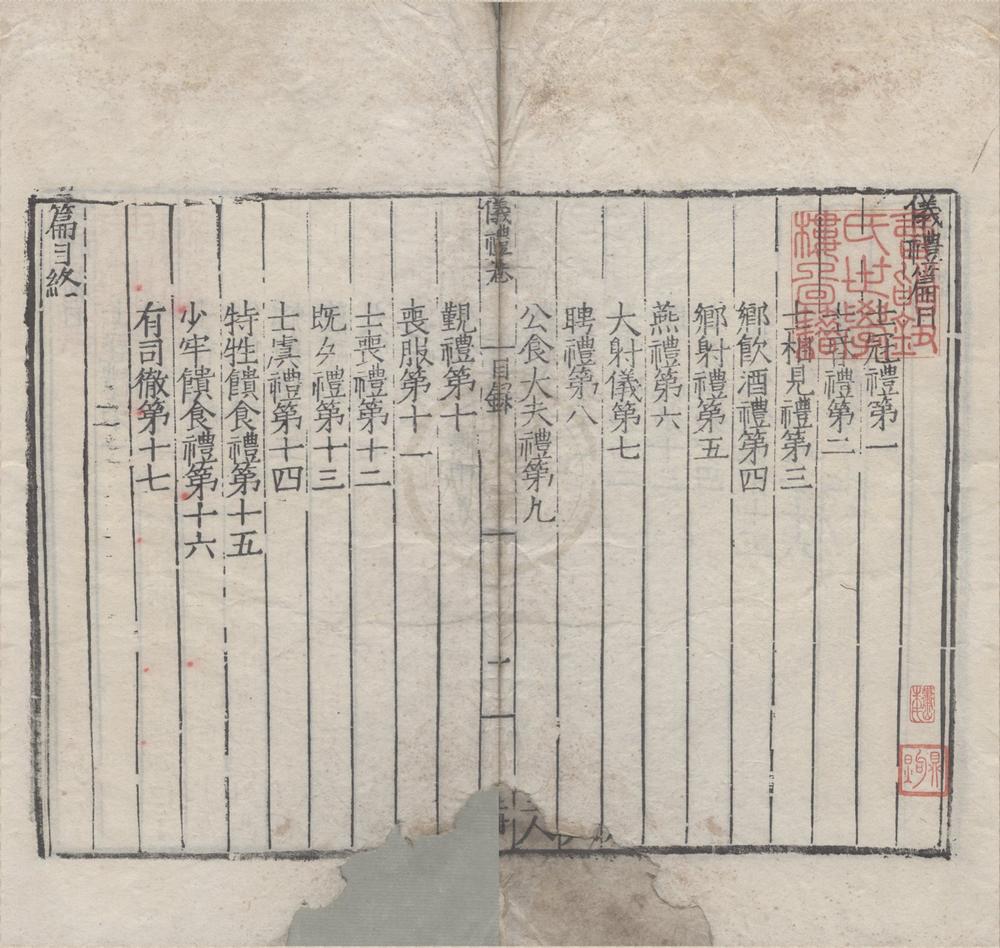 儀禮篇目
士冠禮第一
士昏禮第二
士相見禮第三
鄉飲酒禮第四
鄉射禮第五
燕禮第六
大射儀第七
聘禮第八
公食大夫禮第九
儀禮卷
目錄
一
覲禮第十
喪服第十一
士喪禮第十二
既夕禮第十三
士虞禮第十四
特牲饋食禮第十五
少牢饋食禮第十六
有司徹第十七
篇目終